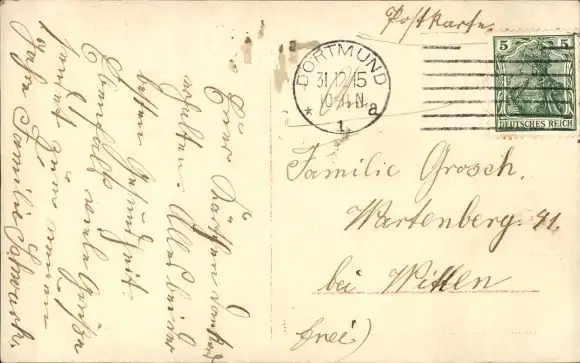 Postkarte.
DORTMUND
31.12.15
* 1. a
5 5
DEUTSCHES REICH
Familie Grosch.
Wartenberg. 41.
bei Witten
(frei)
Euer Kärtchen dankend
erhalten. Alles bei der
besten Gesundheit.
Ebenfalls viele Grüße
zum neuen
Jahre Familie Schwark.